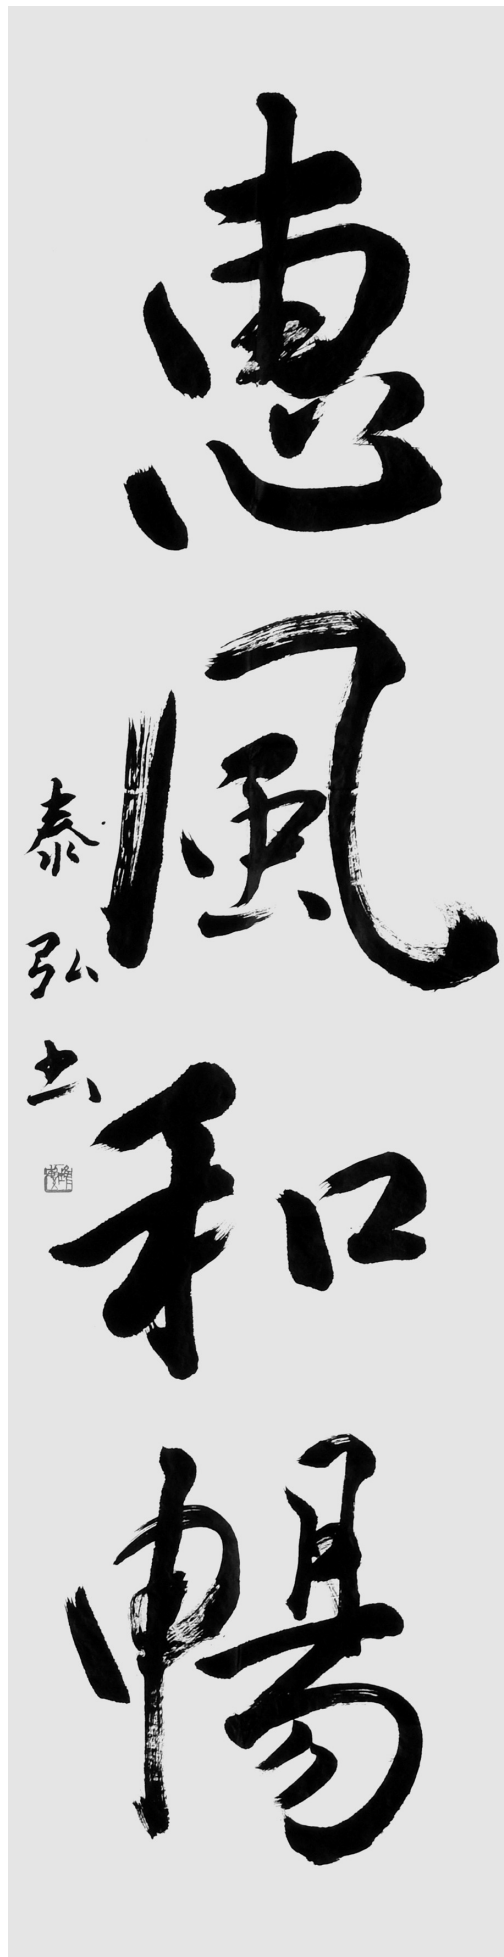 惠風和暢
泰弘书